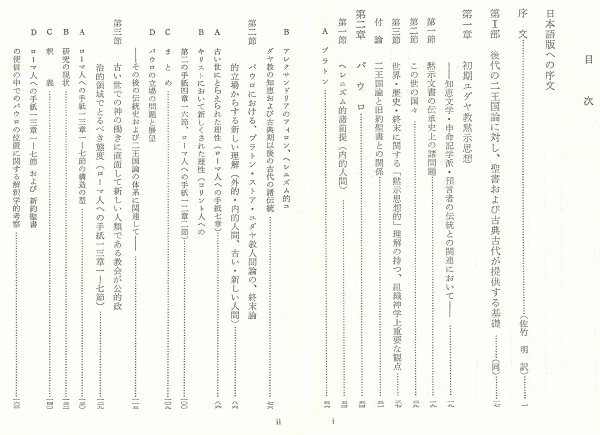 目次
日本語版への序文
序文……(佐竹 明 訳)…一
第Ⅰ部 後代の二王国論に対し、聖書および古典古代が提供する基礎……(同)…一七
第一章 初期ユダヤ教黙示思想
――知恵文学・申命記学派・預言者の伝統との関連において――……一九
第一節 黙示文書の伝承史上の諸問題……一九
第二節 この世の国々
第三節 世界・歴史・終末に関する「黙示思想的」理解の持つ、組織神学上重要な観点……三七
付論 二王国論と旧約聖書との関係
第二章 パウロ
第一節 ヘレニズム的諸前提(内的人間)
A プラトン
i
B アレクサンドリアのフィロン、ヘレニズム的ユ
ダヤ教の知恵および古典期以後の古代の諸伝統……七六
第二節 パウロにおける、プラトン・ストア・ユダヤ教人間論の、終末論
的立場からする新しい理解(外的・内的人間、古い・新しい人間)……八六
A 古い世にとらえられた理性(ローマ人への手紙七章)……八六
B キリストにおいて新しくされた理性(コリント人への
第二の手紙四章一六節、ローマ人への手紙一二章二節)……一〇〇
C まとめ……一〇九
D パウロの立場の問題と展望
――その後の伝統史および二王国論の体系に関連して――……一一五
第三節 古い世での神の働きに直面して新しい人類である教会が公的政
治的領域でとるべき態度(ローマ人への手紙一三章一―七節)
A ローマ人への手紙一三章一―七節の構造の型
B 研究の現状
C 釈義……一四〇
D ローマ人への手紙一三章一―七節 および 新約聖書
の使信の中でのパウロの位置に関する解釈学的考察
ii